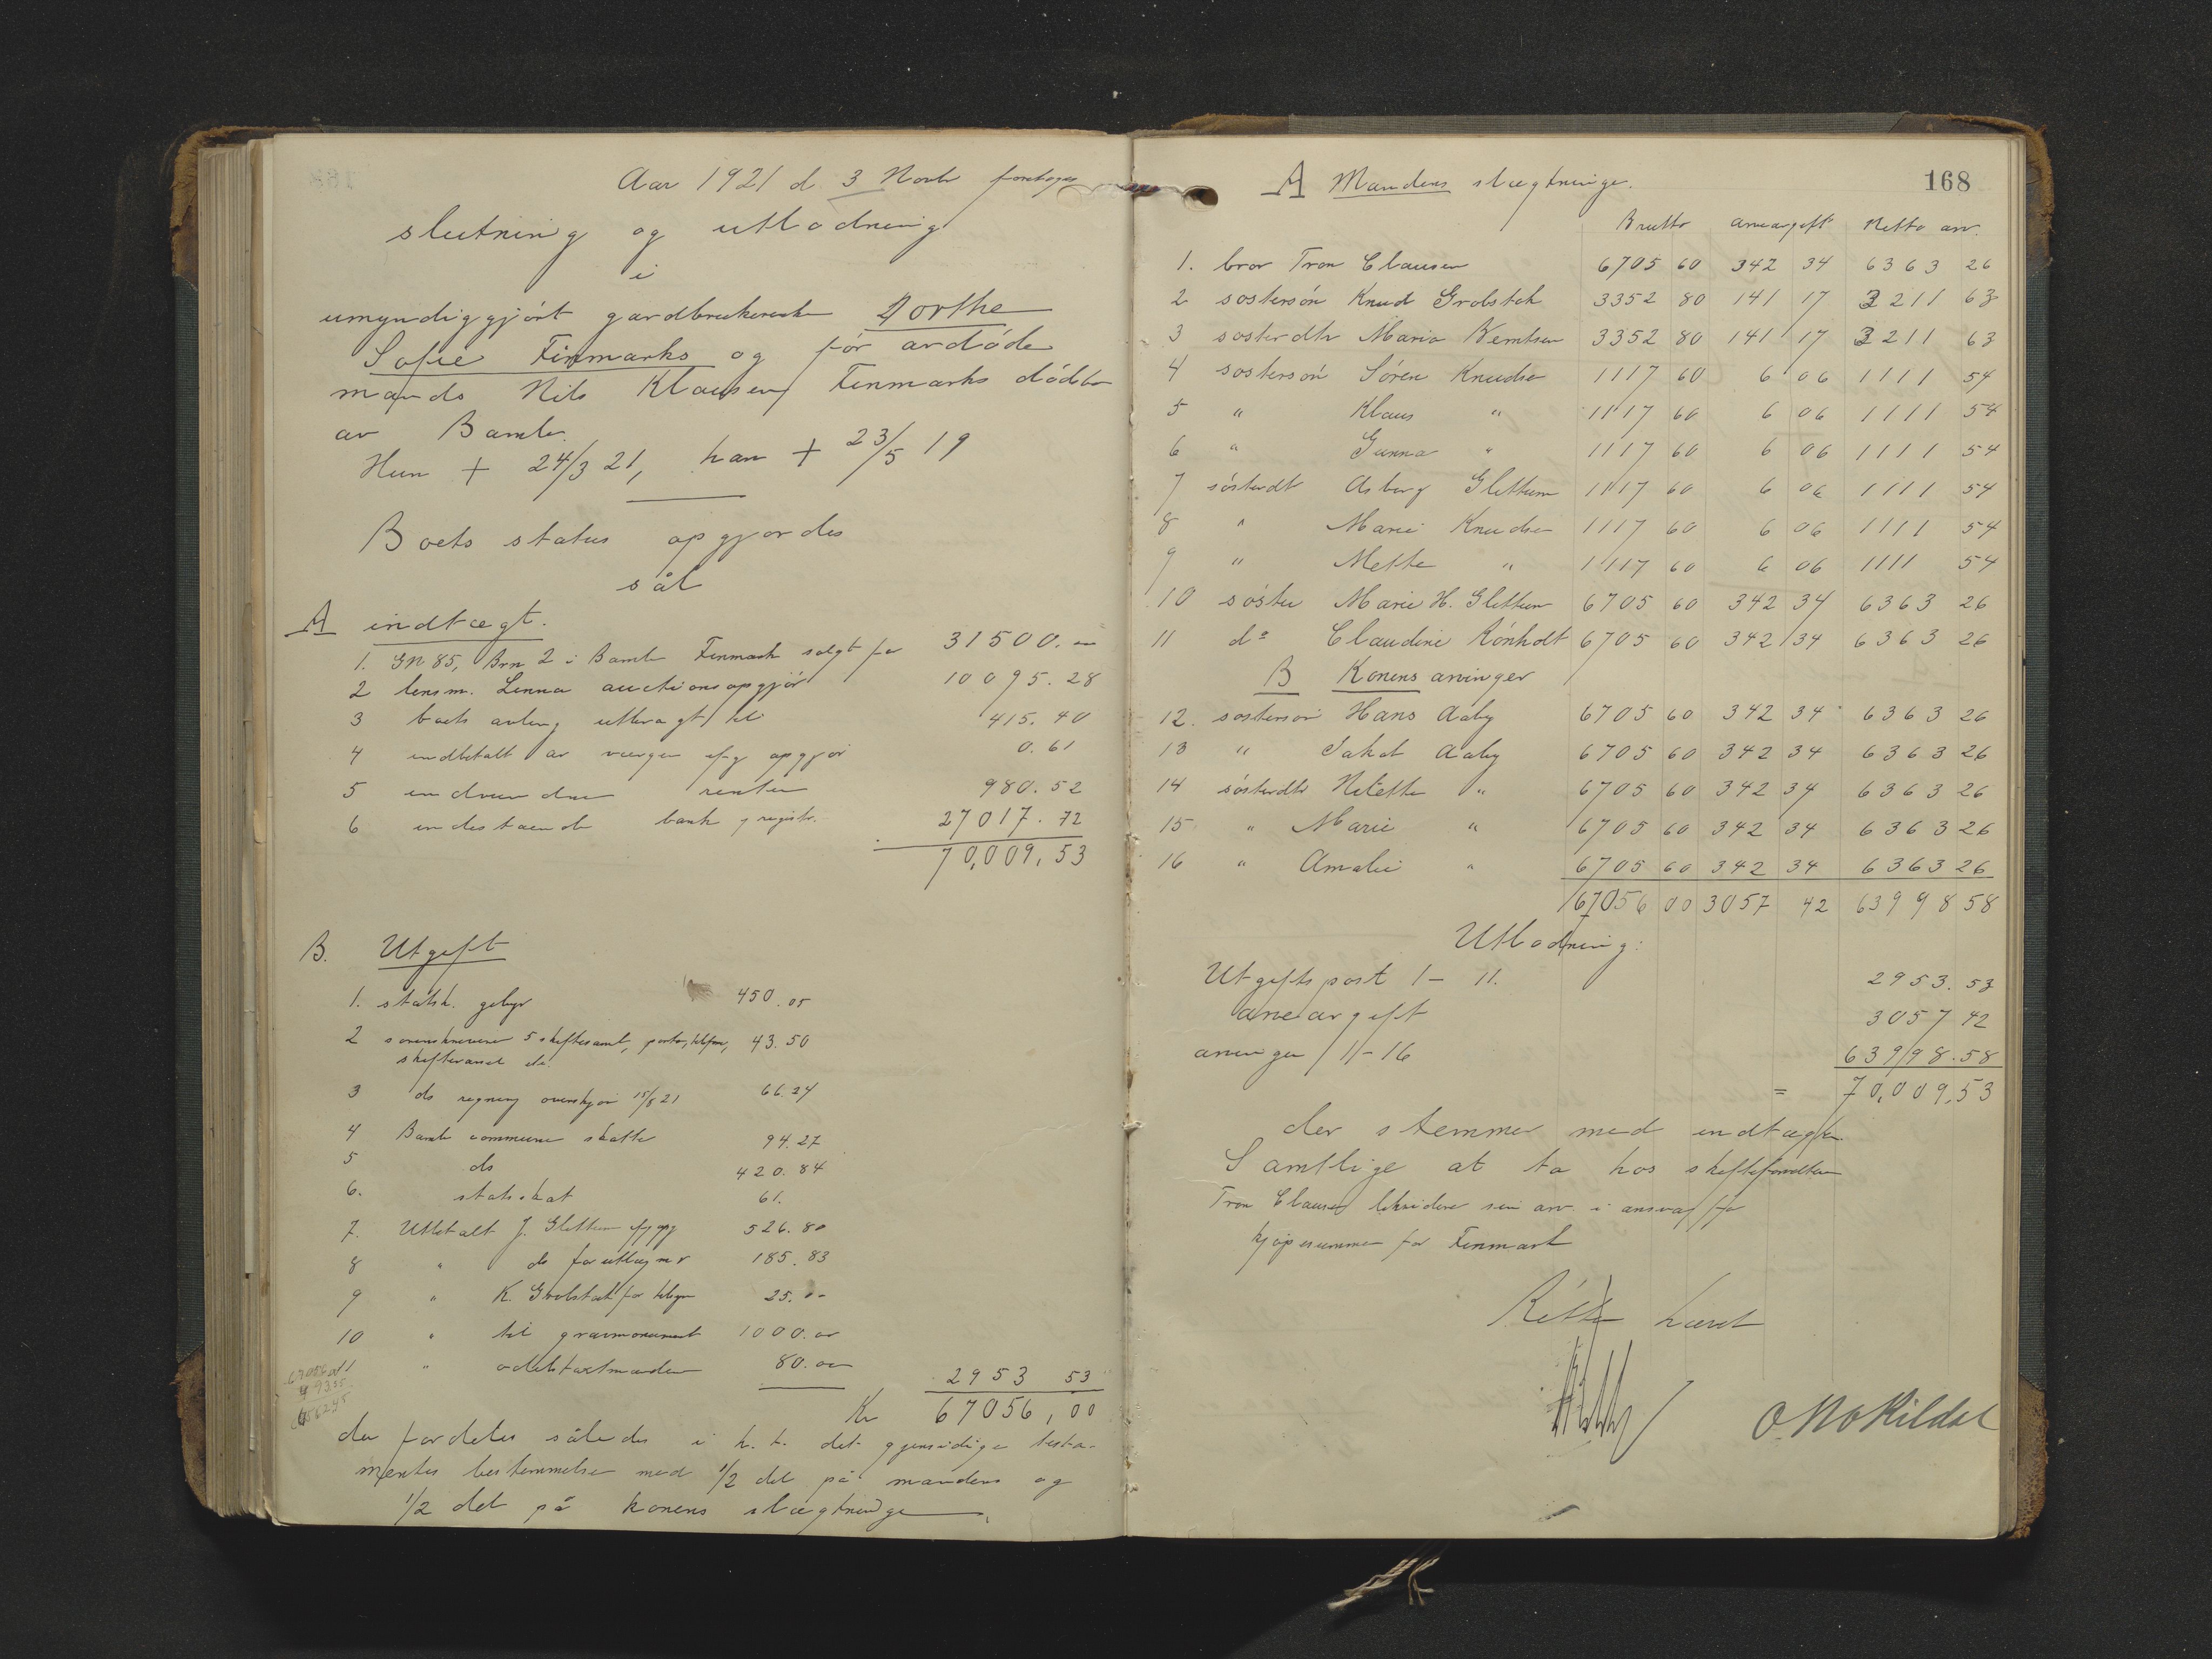 Aar 1921 d. 3 Novb foretages
slutning og utlodning
i
umyndiggjort gardbrukerenke Dorthe
Sofie Finmarks og før avdøde
mands Nils Klausen Finmarks dødsbo
av Bamle.
Hun + 24/3 21, han + 23/5 19
Boets status opgjordes
sål
A indtægt.
1. GN 85, Brn 2 i Bamle Finmark solgt for 31500.00
2 lensm. Lenna auctionsopgjør 10095.28
3 boets avling utbragt til 415.40
4 indbetalt av værgen efg opgjør 0.61
5 indvundne renter 980.52
6 indestaende bank g registr. 27017.72
70,009,53
B. Utgift
1. statsk. gebyr 450.05
2 sorenskriveren 5 skiftesaml, porto, telefon, 43.50
skifteransl etc.
3 do regning overskjøn 15/8 21 66.24
4 Bamle commune skatte 94.27
5 do 420.84
6. statsskat 61.
7. Utbetalt J. Glittum efg opg 526.80
8 " do for utlæg m v 185.83
9 " K. Grobstok for telegr 25.00
10 " til gravmonument 1000.00
11 " odelstakstmænden 80.00
2953 53
Kr 67056,00
der fordeles således i h. t. det gjensidige testa-
mentes bestemmelse med 1/2 del på mandens og
1/2 del på konens slægtninge
168
A Mandens slægtninge.
Brutto arveavgift Netto arv.
1. bror Tron Clausen 6705 60 342 34 6363 26
2 søstersøn Knud Grobstok 3352 80 141 17 3211 63
3 søsterdtr Maria Berntsen 3352 80 141 17 3211 63
4 søstersøn Søren Knudsen 1117 60 6 06 1111 54
5 " Klaus " 1117 60 6 06 1111 54
6 " Gunna " 1117 60 6 06 1111 54
7 søsterdt Asborg Glittum 1117 60 6 06 1111 54
8 " Marie Knudsen 1117 60 6 06 1111 54
9 " Mette " 1117 60 6 06 1111 54
10 søster Marie H. Glittum 6705 60 342 34 6363 26
11 do Claudine Rønholt 6705 60 342 34 6363 26
B Konens arvinger
12. søstersøn Hans Aaby 6705 60 342 34 6363 26
13 " Jakob Aaby 6705 60 342 34 6363 26
14 søsterdtr Nilette " 6705 60 342 34 6363 26
15 " Marie " 6705 60 342 34 6363 26
16 " Amalie " 6705 60 342 34 6363 26
67056 00 3057 42 63998 58
Utlodning:
Utgiftspost 1 - 11. 2953.53
arveavgift 3057 42
arvinger 1-16 63998.58
= 70,009,53
der stemmer med indtægten.
Samtlige at ta hos skifteforvalteren
Tron Clausen likviderer sin arv i ansvar for
kjøpesummen for Finmark
Retten hævet
O. N. Kildal